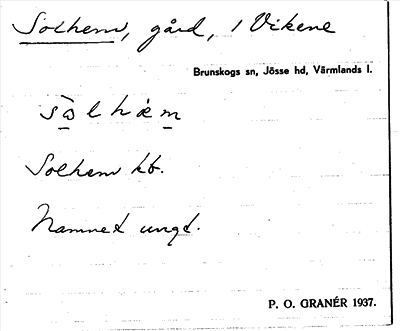 Solhem, gård, i Vikene
Brunskogs sn, Jösse hd, Värmlands l.
Solhem kb.
Namnet ungt.
P. O. GRANÉR 1937.